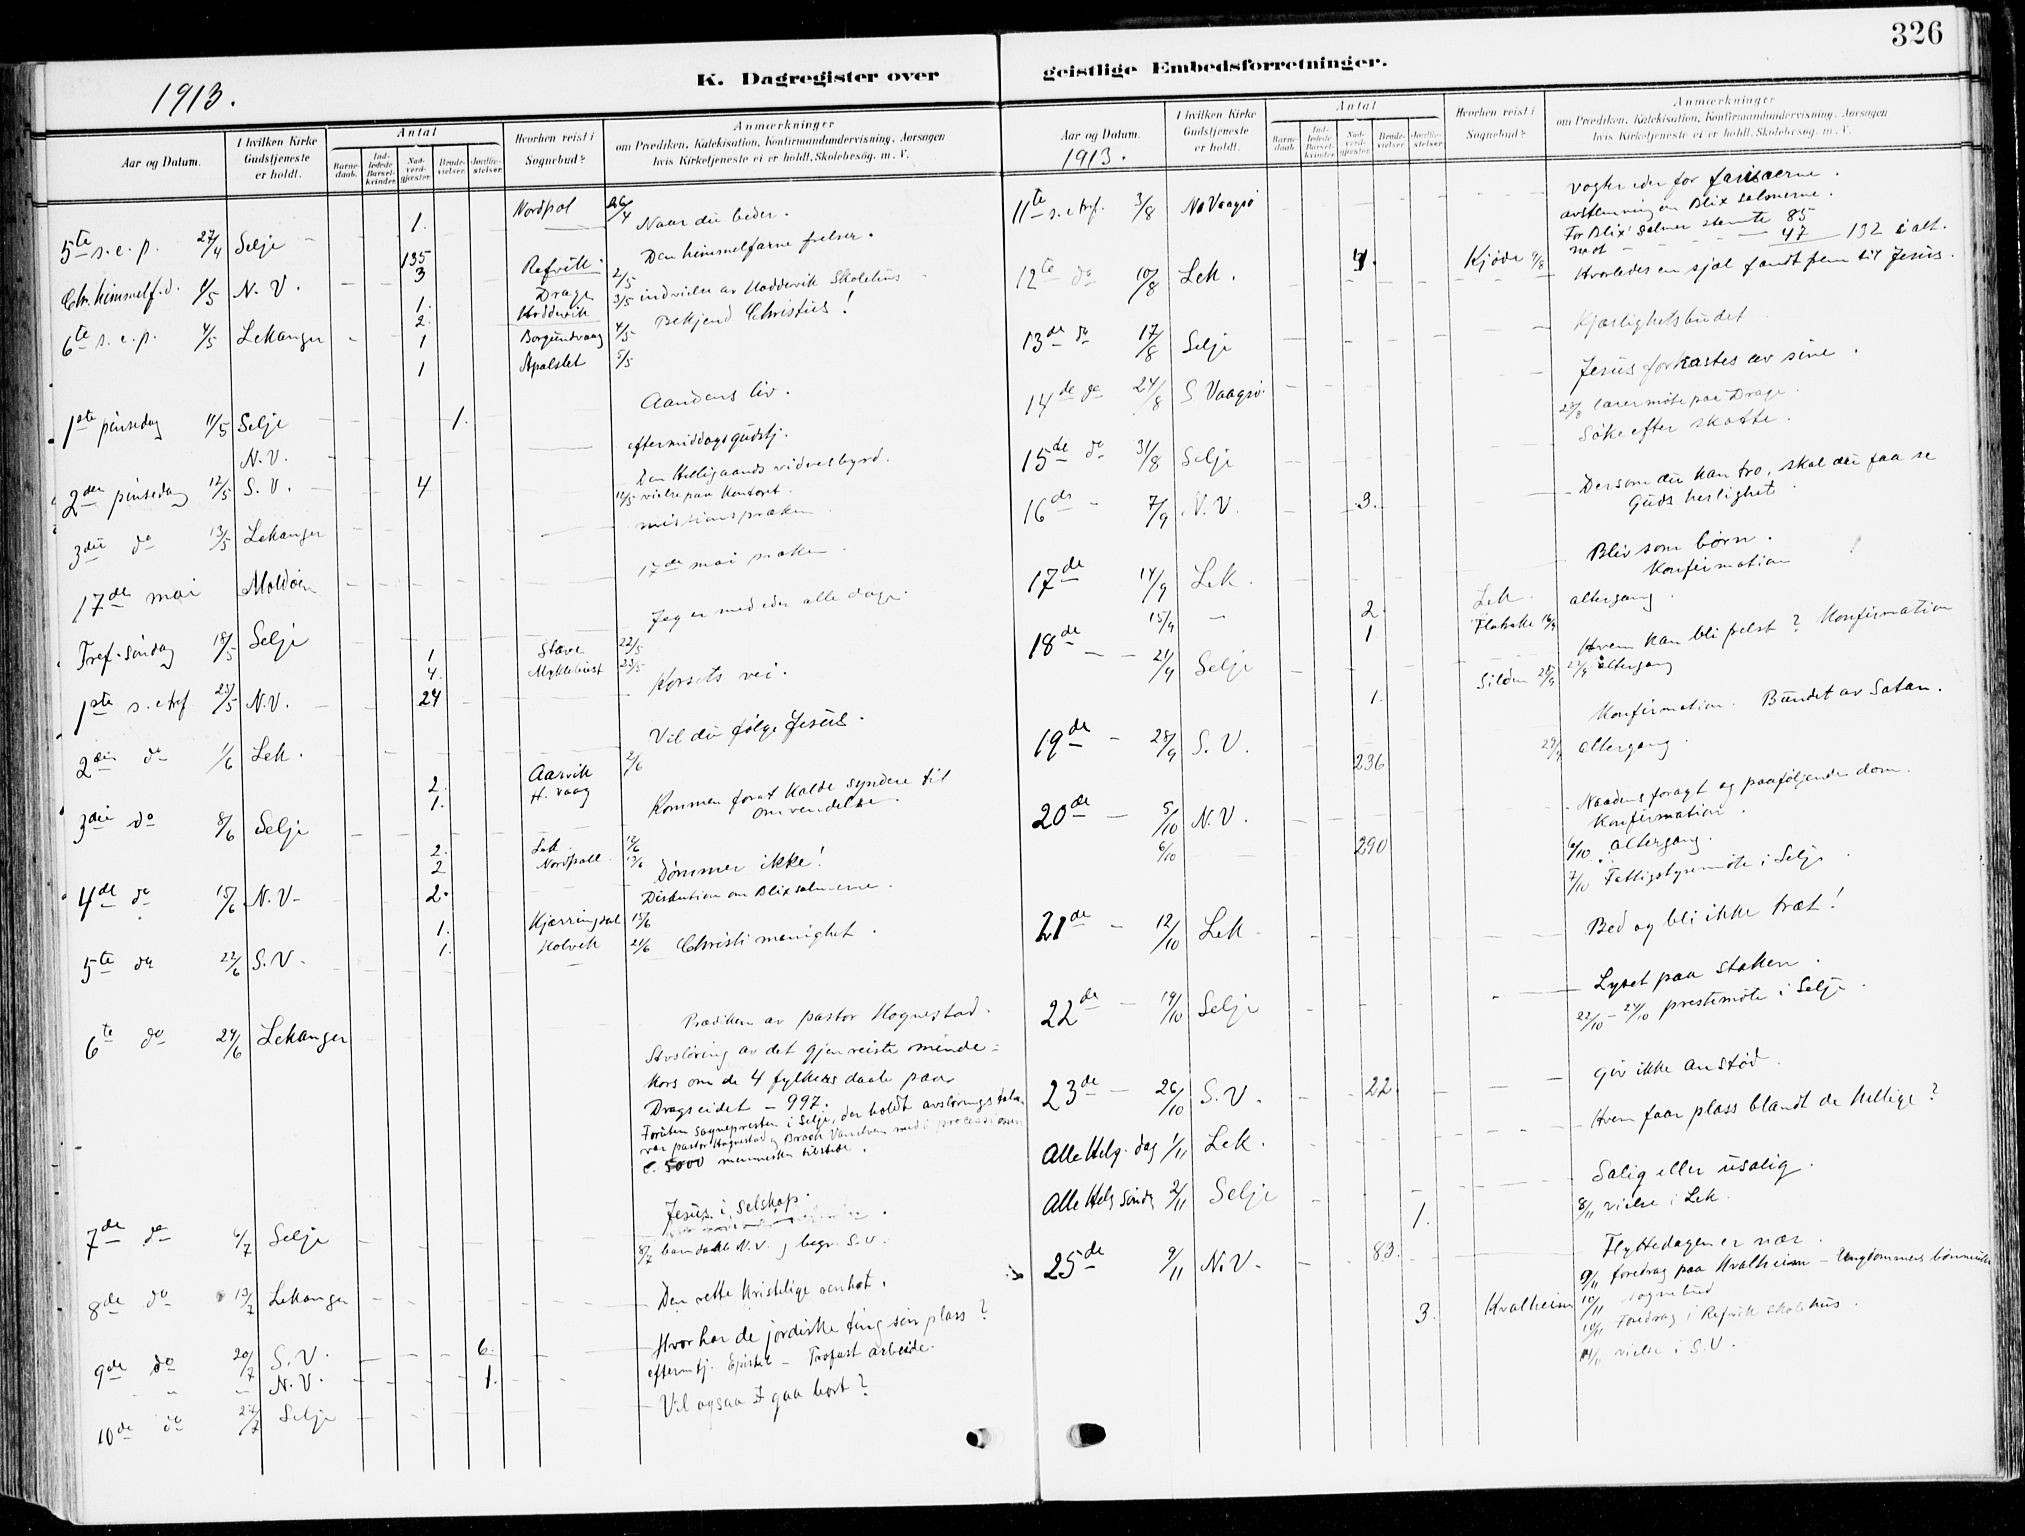 326
K. Dagregister over
geistlige Embedsforretninger.
1913.
Aar og Datum.
I hvilken Kirke Gudstjeneste er holdt.
Antal
Barnedaab.
Indledede Barselkvinder.
Nadverdgjester.
Brudevielser.
Jordfæstelser.
Hvorhen reist i Sognebud?
Anmærkninger
om Prædiken, Katekisation, Konfirmandundervisning, Aarsagen
hvis Kirketjeneste ei er holdt, Skolebesøg. m. V.
1. Nordpol 26/4
5te s. e. p. 27/4 Selje Naar du beder.
135 Refvik
Chr. himmelf. d. 1/5 N. V. 3 Drage 2/5 Den himmelfarne frelser.
1. Hoddevik 3/5 indvielse av Hoddevik Skolehus
6te s. e. p. 4/5 Lekanger 2. Borgundvaag 4/5 Bekjend Christus!
1 Apalset 5/5
1
1ste pinsedag 11/5 Selje 1. Aandens liv.
N. V. eftermiddagsgudstj.
2den pinsedag 12/5 S. V. 4 Den Helligaands vidnesbyrd.
12/5 vielse paa kontoret.
3die do 13/5 Lekanger missionspræken
17de mai Moldøen 17de mai præken.
Tref. søndag 18/5 Selje Jeg er med eder alle dage.
1 Stave 22/5
4. Myklebust 23/5
1ste s. e. tref 25/5 N. V. 24 Korsets vei.
2den do 1/6 Lek. Vil du følge Jesus.
2. Aarvik 2/6
1. H. vaag
3die do 8/6 Selje Kommen forat kalde syndere til
omvendelse.
2. Lek 12/6
2 Nordpoll 13/6
4de do 15/6 N. V. 2. Dømmer ikke!
Diskution om Blixsalmerne.
1. Kjærringdal 15/6
1. Holvik 21/6
5te do 22/6 S. V. Christi menighet.
6te do 29/6 Lekanger Prædiken av pastor Hognestad.
Avsløring av det gjenreiste minde-
kors om de 4 fylkers daab paa
Dragseidet – 997.
Foruten sognepresten i Selje, der holdt avsløringstalen
var pastor Hognestad og Broch Vandven med i processionen
c. 5000 mennesker tilstede.
7de do 6/7 Selje Jesus i selskap.
8/7 barnedaab N. V. og begr. S. V.
8de do 13/7 Lekanger Den rette kristelige enhet.
9de do 20/7 S. V. 6. Hvor har de jordiske ting sin plass?
" " N. V. 1. eftermtj. Epistel – Trofast arbeide.
10de do 27/7 Selje Vil ogsaa I gaa bort?
Aar og Datum.
1913.
I hvilken Kirke Gudstjeneste er holdt.
Antal
Barnedaab.
Indledede Barselkvinder.
Nadverdgjester.
Brudevielser.
Jordfæstelser.
Hvorhen reist i Sognebud?
Anmærkninger
om Prædiken, Katekisation, Konfirmandundervisning, Aarsagen
hvis Kirketjeneste ei er holdt, Skolebesøg. m. V.
11te s. e. tref. 3/8 No Vaagsø Vogter eder for farisæerne.
avstemning om Blix salmerne.
For Blix' salmer stemte 85
mot 47 132 i alt.
12te do 10/8 Lek. 4. Kjøde 9/8 Hvorledes en sjæl fandt frem til Jesus.
13de do 17/8 Selje Kjærlighetsbudet
14de do 24/8 S Vaagsø Jesus forkastes av sine.
28/8 lærermøte paa Drage.
15de do 31/8 Selje Søke efter skatte.
16de - 7/9 N. V. 3. Dersom du kan tro, skal du faa se
Guds herlighet
17de 14/9 Lek. Bliv som børn.
Konfirmation
15/9 2. Lek. altergang.
1. Flatrake 16/9
18de - - 21/9 Selje Hvem kan bli frelst? Konfirmation
22/9 altergang
1. Silden 25/9
19de - 28/9 S. V. Konfirmation. Bundet av Satan.
236 29/9 altergang.
20de - 5/10 N. V. Naadens foragt og paafølgende dom.
Konfirmation.
6/10 290 6/10 altergang.
7/10 Fattigstyremøte i Selje
21de - 12/10 Lek Bed og bli ikke træt!
22de - 19/10 Selje Lyset paa staken.
22/10 – 24/10 prestemøte i Selje.
23de - 26/10 S. V. 22 Giv ikke anstød.
Alle Helg. dag 1/11 Lek. Hvem faar plass blandt de hellige?
Alle Helg Sønd. 2/11 Selje Salig eller usalig.
1. 8/11 vielse i Lek.
25de 9/11 N. V. 83. Flyttedagen er nær.
9/11 foredrag paa Kvalheim – Ungdommens bønneuke
3. Kvalheim 10/11 sognebud
10/11 Foredrag i Refvik skolehus.
14/11 vielse i S. V.